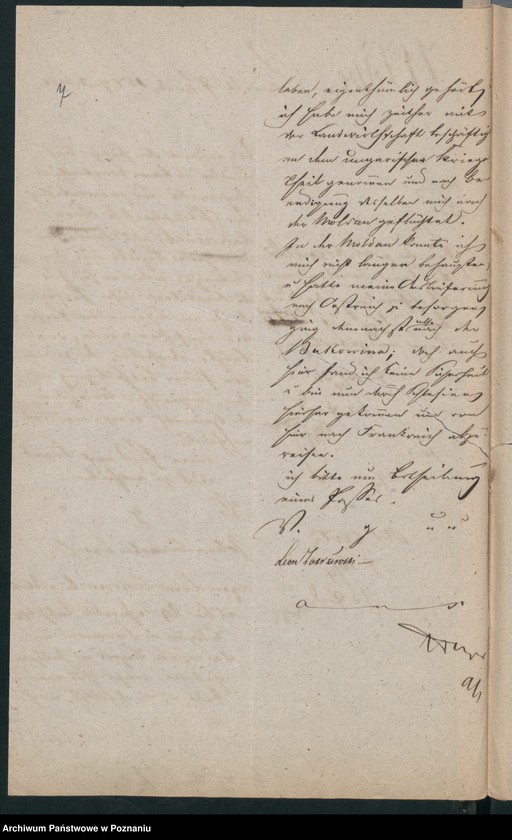 7
leben, eigenthümlich gehört,
ich habe mich zeither mit
der Landwirthschaft beschäftigt
an dem ungarischen Kriege
Theil genommen und nach Be-
endigung desselben mich nach
der Moldau geflüchtet.
In der Moldau konnte ich
mich nicht länger behaupten
u hatte meine Auslieferung
nach Oestreich zu besorgen
ging demnächst also nach der
Bukowina; doch auch
hier fand ich keine Sicherheit
u bin nun durch Schlesien
hierher gekommen um von
hier nach Frankreich abzu-
reisen.
ich bitte um Ertheilung
eines Passes.
V. g. u u
Leon
a u s
Archiwum Państwowe w Poznaniu